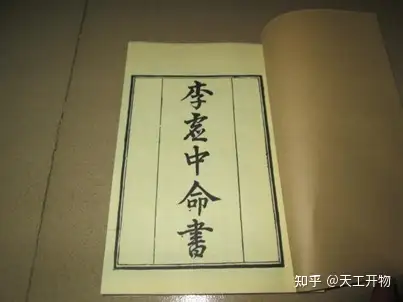 李虚中命書
知乎 @天工开物